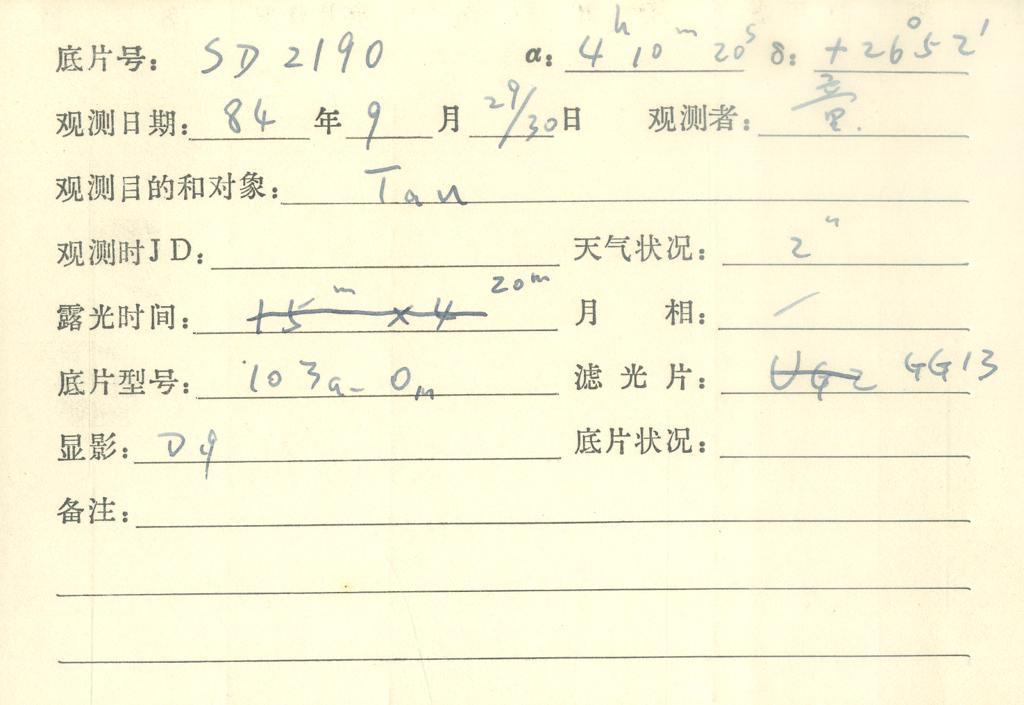 底片号: SD 2190 α: 4h 10m 20s δ: +26°52'
观测日期: 84 年 9 月 29/30 日 观测者:
观测目的和对象: Tau
观测时JD: 天气状况: 2"
露光时间: 15m × 4 20m 月 相: /
底片型号: 103a-O 滤光片: UG2 GG13
显影: D19
底片状况:
备注: